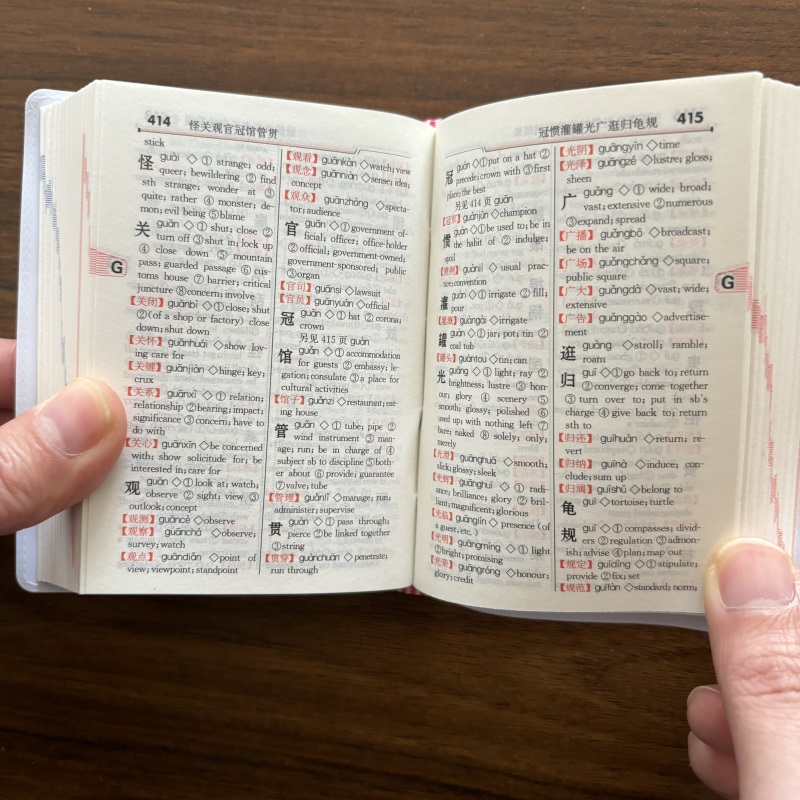 414 怪关观官冠馆管贯
stick
怪 guài ◇ ① strange; odd;
queer; bewildering ② find
sth strange; wonder at ③
quite; rather ④ monster; de-
mon; evil being ⑤blame
关 guān ◇ ①shut; close ②
turn off ③shut in; lock up
④ close down ⑤ mountain
pass; guarded passage ⑥ cus-
toms house ⑦ barrier; critical
juncture ⑧concern; involve
【关闭】guānbì ◇①close; shut
②(of a shop or factory) close
down; shut down
【关怀】guānhuái ◇show lov-
ing care for
【关键】guānjiàn ◇hinge; key;
crux
【关系】guānxì ◇ ① relation;
relationship ②bearing; impact;
significance ③concern; have to
do with
【关心】guānxīn ◇be concerned
with; show solicitude for; be
interested in; care for
观 guān ◇ ① look at; watch;
observe ② sight; view ③
outlook; concept
【观测】guāncè ◇observe
【观察】guānchá ◇observe;
survey; watch
【观点】guāndiǎn ◇point of
view; viewpoint; standpoint
G
【观看】guānkàn ◇watch; view
【观念】guānniàn ◇sense; idea;
concept
【观众】guānzhòng ◇specta-
tor; audience
官 guān ◇ ①government of-
ficial; officer; office holder
②official; government-owned;
government-sponsored; public
③organ
【官司】guānsi ◇lawsuit
【官员】guānyuán ◇official
冠 guān ◇ ①hat ②corona;
crown
另见 415 页 guàn
馆 guǎn ◇ ①accommodation
for guests ②embassy; le-
gation; consulate ③a place for
cultural activities
【馆子】guǎnzi ◇restaurant; eat-
ing house
管 guǎn ◇ ① tube; pipe ②
wind instrument ③ man-
age; run; be in charge of ④
subject sb to discipline ⑤both-
er about ⑥provide; guarantee
⑦valve; tube
【管理】guǎnlǐ ◇manage; run;
administer; supervise
贯 guàn ◇ ①pass through;
pierce ②be linked together
③string
【贯穿】guànchuān ◇penetrate;
run through
冠惯灌罐光广逛归龟规 415
冠 guàn ◇①put on a hat ②
precede; crown with ③first
place; the best
另见 414 页 guān
【冠军】guànjūn ◇champion
惯 guàn ◇①be used to; be in
the habit of ② indulge;
spoil
【惯例】guànlì ◇ usual prac-
tice; convention
灌 guàn ◇ ①irrigate ②fill;
pour
【灌溉】guàngài ◇irrigate
罐 guàn ◇①jar; pot; tin ②
coal tub
【罐头】guàntou ◇tin; can
光 guāng ◇ ①light; ray ②
brightness; lustre ③ hon-
our; glory ④ scenery ⑤
smooth; glossy; polished ⑥
used up; with nothing left ⑦
bare; naked ⑧ solely; only;
merely
【光滑】guānghuá ◇smooth;
slick; glossy; sleek
【光辉】guānghuī ◇ ① radi-
ance; brilliance; glory ② bril-
liant; magnificent; glorious
【光临】guānglín ◇presence (of
a guest, etc.)
【光明】guāngmíng ◇ ① light
②bright; promising
【光荣】guāngróng ◇honour;
glory; credit
【光阴】guāngyīn ◇time
【光泽】guāngzé ◇lustre; gloss;
sheen
广 guǎng ◇ ① wide; broad;
vast; extensive ②numerous
③expand; spread
【广播】guǎngbō ◇broadcast;
be on the air
【广场】guǎngchǎng ◇square;
public square
【广大】guǎngdà ◇vast; wide;
extensive
【广告】guǎnggào ◇advertise-
ment
逛 guàng ◇stroll; ramble;
roam
归 guī ◇①go back to; return
②converge; come together
③ turn over to; put in sb's
charge ④give back to; return
sth to
【归还】guīhuán ◇return; re-
vert
【归纳】guīnà ◇induce; con-
clude; sum up
【归属】guīshǔ ◇belong to
龟 guī ◇tortoise; turtle
规 guī ◇ ① compasses; divid-
ers ②regulation ③admon-
ish; advise ④plan; map out
【规定】guīdìng ◇①stipulate;
provide ②fix; set
【规范】guīfàn ◇standard; norm;
G